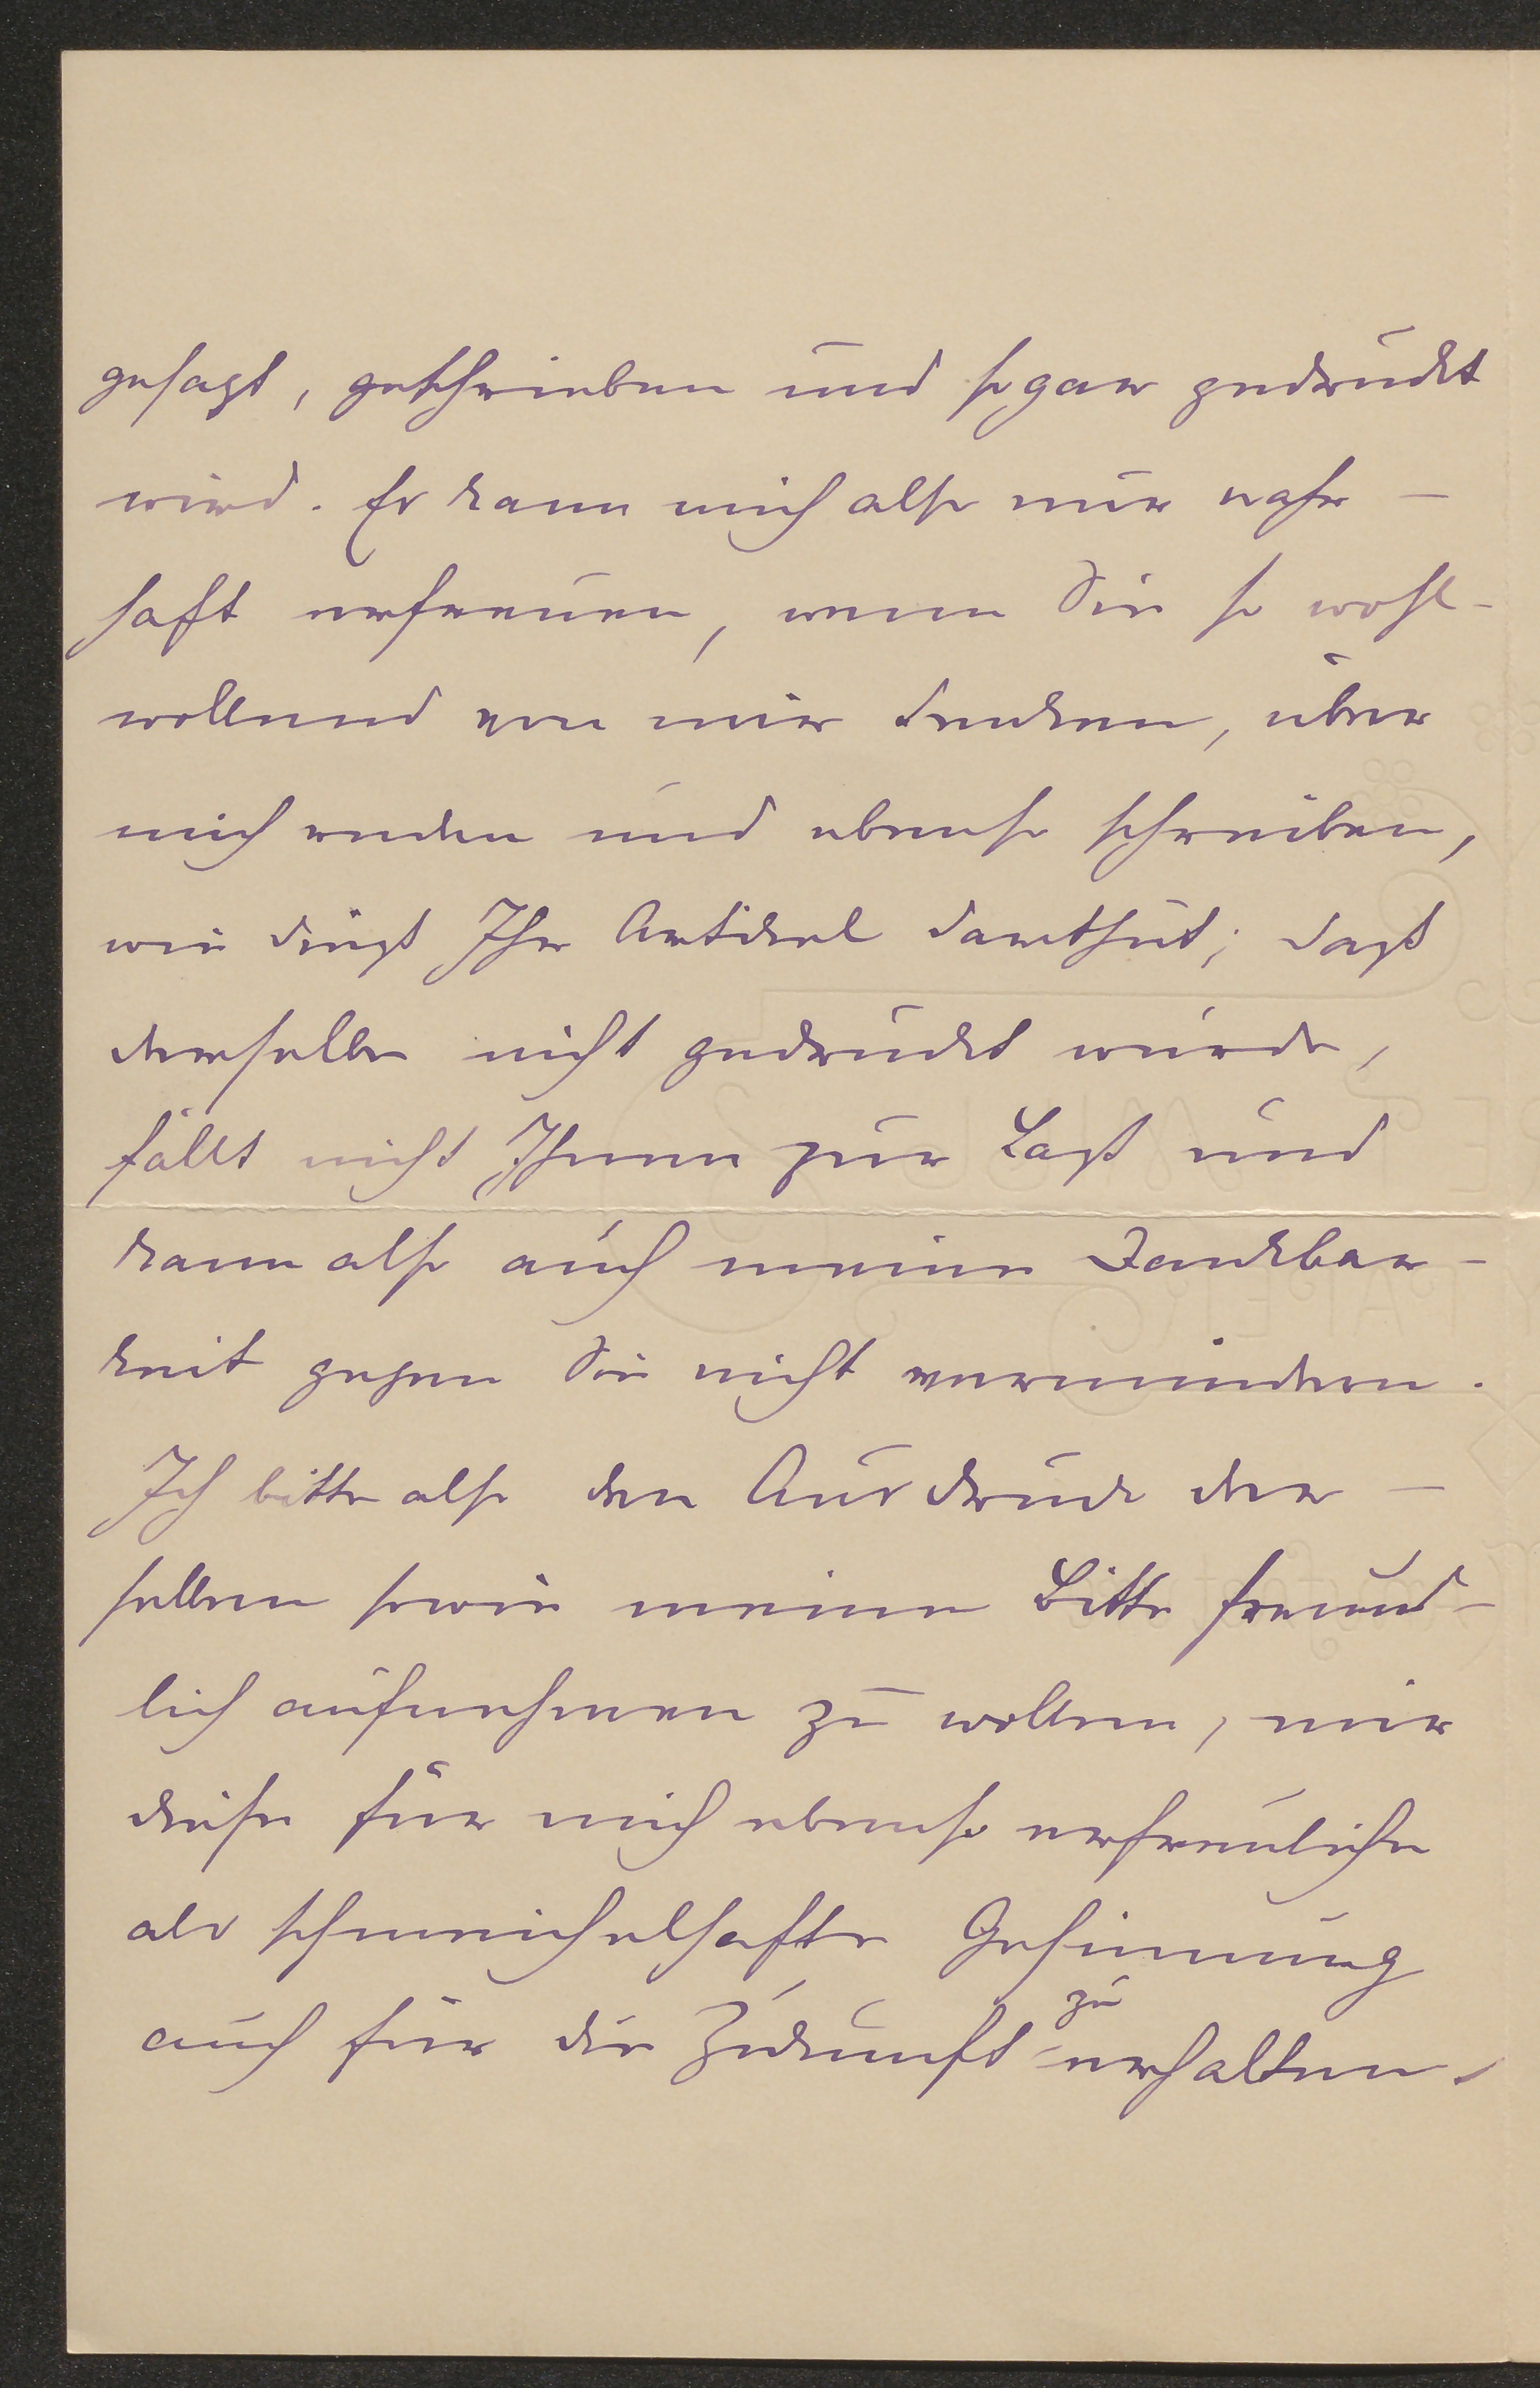 gesagt, geschrieben und sogar gedruckt
wird. Es kann mich also nur wahr-
haft erfreuen, wenn Sie so wohl-
wollend von mir denken, über
mich reden und ebenso schreiben,
wie dieß Ihr Artikel darthut; daß
derselbe nicht gedruckt wurde,
fällt nicht Ihnen zur Last und
kann also auch meine Dankbar-
keit gegen Sie nicht vermindern.
Ich bitte also den Ausdruck der-
selben sowie meine Bitte freund-
lich aufnehmen zu wollen, mir
diese für mich ebenso erfreuliche
als schmeichelhafte Gesinnung
auch für die Zukunft zu erhalten.